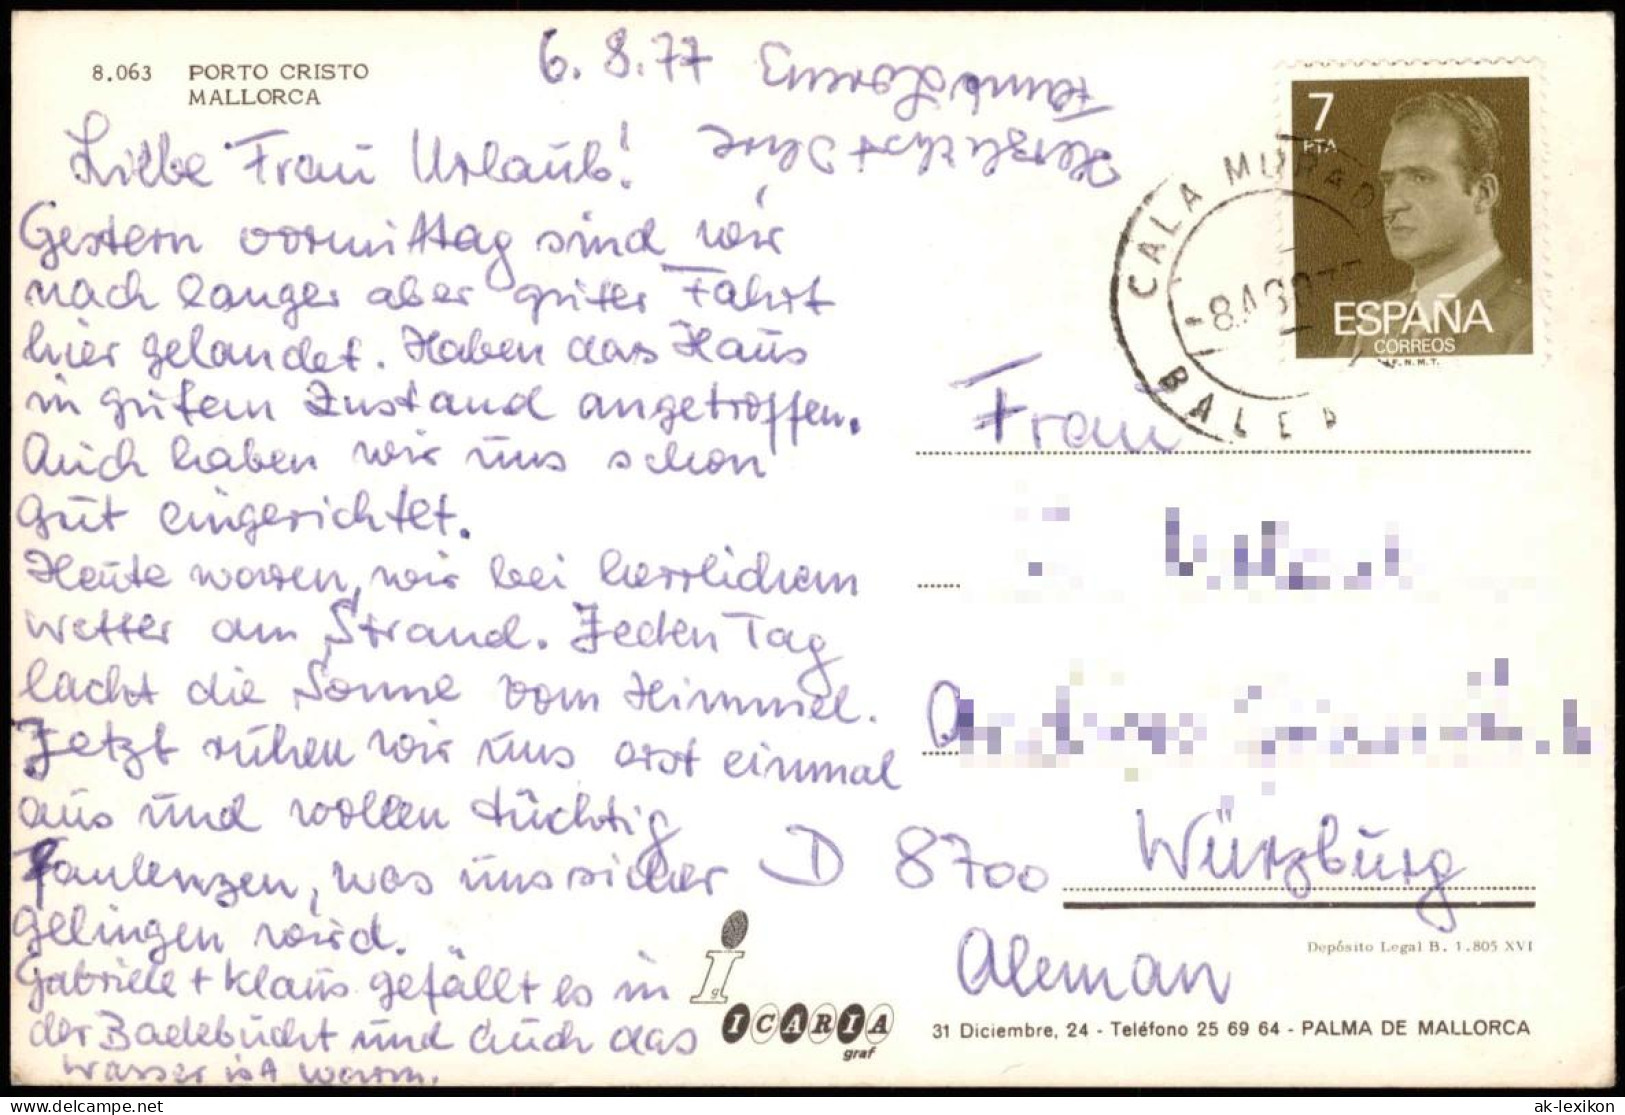 8.063 PORTO CRISTO
MALLORCA
6.8.77
Liebe Frau Urlaub!
Gestern vormittag sind wir
nach langer aber guter Fahrt
hier gelandet. Haben das Haus
in gutem Zustand angetroffen.
Auch haben wir uns schon
gut eingerichtet.
Heute waren wir bei herrlichem
Wetter am Strand. Jeden Tag
lacht die Sonne vom Himmel.
Jetzt ruhen wir uns erst einmal
aus und wollen tüchtig
faulenzen, was uns sicher
gelingen wird.
Gabriele + Klaus gefällt es in
der Badebucht und auch das
Wasser ist warm.
Herzlichst Ihre
Fam. Lorenz
7
PTA
ESPAÑA
CORREOS
F.N.M.T.
CALA MURADA
8 AGO 77
BALEAR
Frau
D 8700 Würzburg
Aleman
Depósito Legal B. 1.805 XVI
ICARIA
graf
31 Diciembre, 24 - Teléfono 25 69 64 - PALMA DE MALLORCA
akpool.com